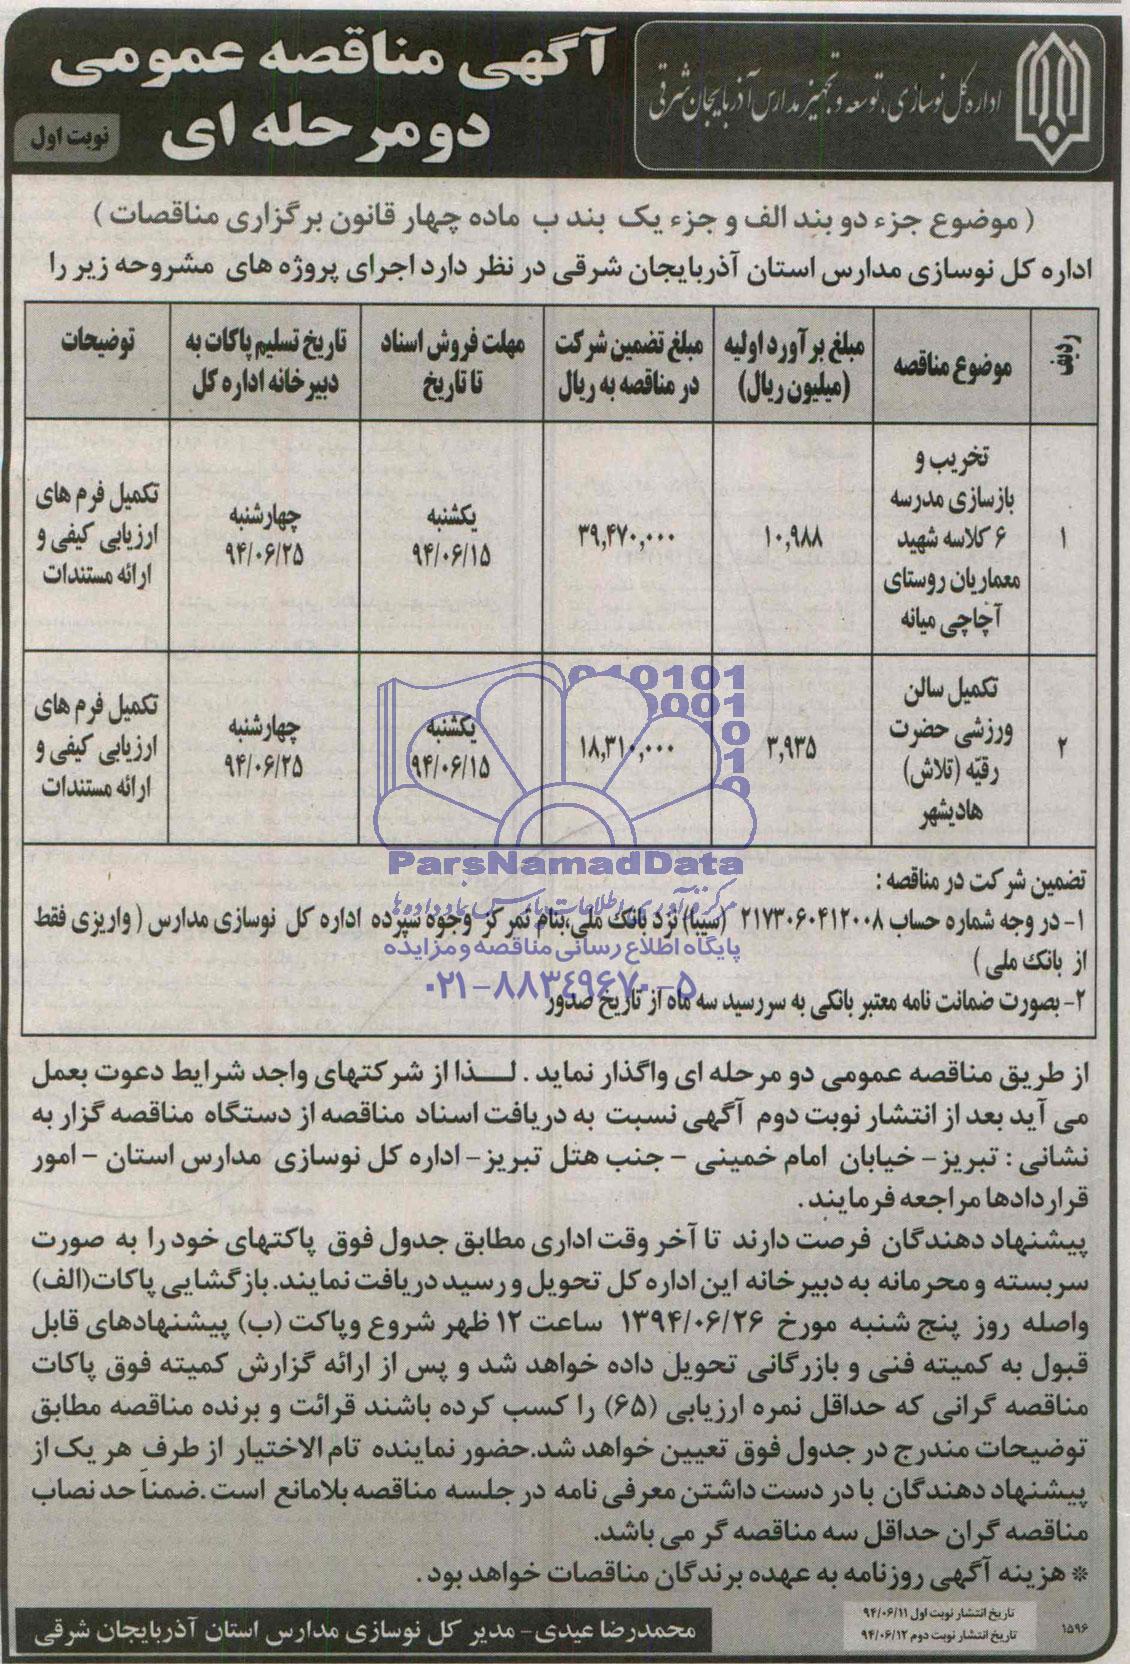 اداره کل نوسازی، توسعه و تجهیز مدارس آذربایجان شرقی
آگهی مناقصه عمومی
دو مرحله ای
نوبت اول
( موضوع جزء دو بند الف و جزء یک بند ب ماده چهار قانون برگزاری مناقصات )
اداره کل نوسازی مدارس استان آذربایجان شرقی در نظر دارد اجرای پروژه های مشروحه زیر را
ردیف
موضوع مناقصه
مبلغ برآورد اولیه
(میلیون ریال)
مبلغ تضمین شرکت
در مناقصه به ریال
مهلت فروش اسناد
تا تاریخ
تاریخ تسلیم پاکات به
دبیرخانه اداره کل
توضیحات
۱
تخریب و
بازسازی مدرسه
۶ کلاسه شهید
معماریان روستای
آچاچی میانه
۱۰,۹۸۸
۳۹,۴۷۰,۰۰۰
یکشنبه
۹۴/۰۶/۱۵
چهارشنبه
۹۴/۰۶/۲۵
تکمیل فرم های
ارزیابی کیفی و
ارائه مستندات
۲
تکمیل سالن
ورزشی حضرت
رقیّه (تلاش)
هادیشهر
۳,۹۳۵
۱۸,۳۱۰,۰۰۰
یکشنبه
۹۴/۰۶/۱۵
چهارشنبه
۹۴/۰۶/۲۵
تکمیل فرم های
ارزیابی کیفی و
ارائه مستندات
010101
ParsNamadData
مرکز فرآوری اطلاعات پارس نماد داده ها
پایگاه اطلاع رسانی مناقصه و مزایده
۰۲۱-۸۸۳۴۹۶۷۰-۵
تضمین شرکت در مناقصه :
۱- در وجه شماره حساب ۲۱۷۳۰۶۰۴۱۲۰۰۸ (سیبا) نزد بانک ملی،بنام تمرکز وجوه سپرده اداره کل نوسازی مدارس ( واریزی فقط
از بانک ملی )
۲- بصورت ضمانت نامه معتبر بانکی به سررسید سه ماه از تاریخ صدور
از طریق مناقصه عمومی دو مرحله ای واگذار نماید . لـــذا از شرکتهای واجد شرایط دعوت بعمل
می آید بعد از انتشار نوبت دوم آگهی نسبت به دریافت اسناد مناقصه از دستگاه مناقصه گزار به
نشانی : تبریز- خیابان امام خمینی - جنب هتل تبریز- اداره کل نوسازی مدارس استان - امور
قراردادها مراجعه فرمایند .
پیشنهاد دهندگان فرصت دارند تا آخر وقت اداری مطابق جدول فوق پاکتهای خود را به صورت
سربسته و محرمانه به دبیرخانه این اداره کل تحویل و رسید دریافت نمایند. بازگشایی پاکات(الف)
واصله روز پنج شنبه مورخ ۱۳۹۴/۰۶/۲۶ ساعت ۱۲ ظهر شروع وپاکت (ب) پیشنهادهای قابل
قبول به کمیته فنی و بازرگانی تحویل داده خواهد شد و پس از ارائه گزارش کمیته فوق پاکات
مناقصه گرانی که حداقل نمره ارزیابی (۶۵) را کسب کرده باشند قرائت و برنده مناقصه مطابق
توضیحات مندرج در جدول فوق تعیین خواهد شد.حضور نماینده تام الاختیار از طرف هر یک از
پیشنهاد دهندگان با در دست داشتن معرفی نامه در جلسه مناقصه بلامانع است.ضمناً حد نصاب
مناقصه گران حداقل سه مناقصه گر می باشد.
* هزینه آگهی روزنامه به عهده برندگان مناقصات خواهد بود .
۱۵۹۶
تاریخ انتشار نوبت اول ۹۴/۰۶/۱۱
تاریخ انتشار نوبت دوم ۹۴/۰۶/۱۲
محمدرضا عیدی- مدیر کل نوسازی مدارس استان آذربایجان شرقی